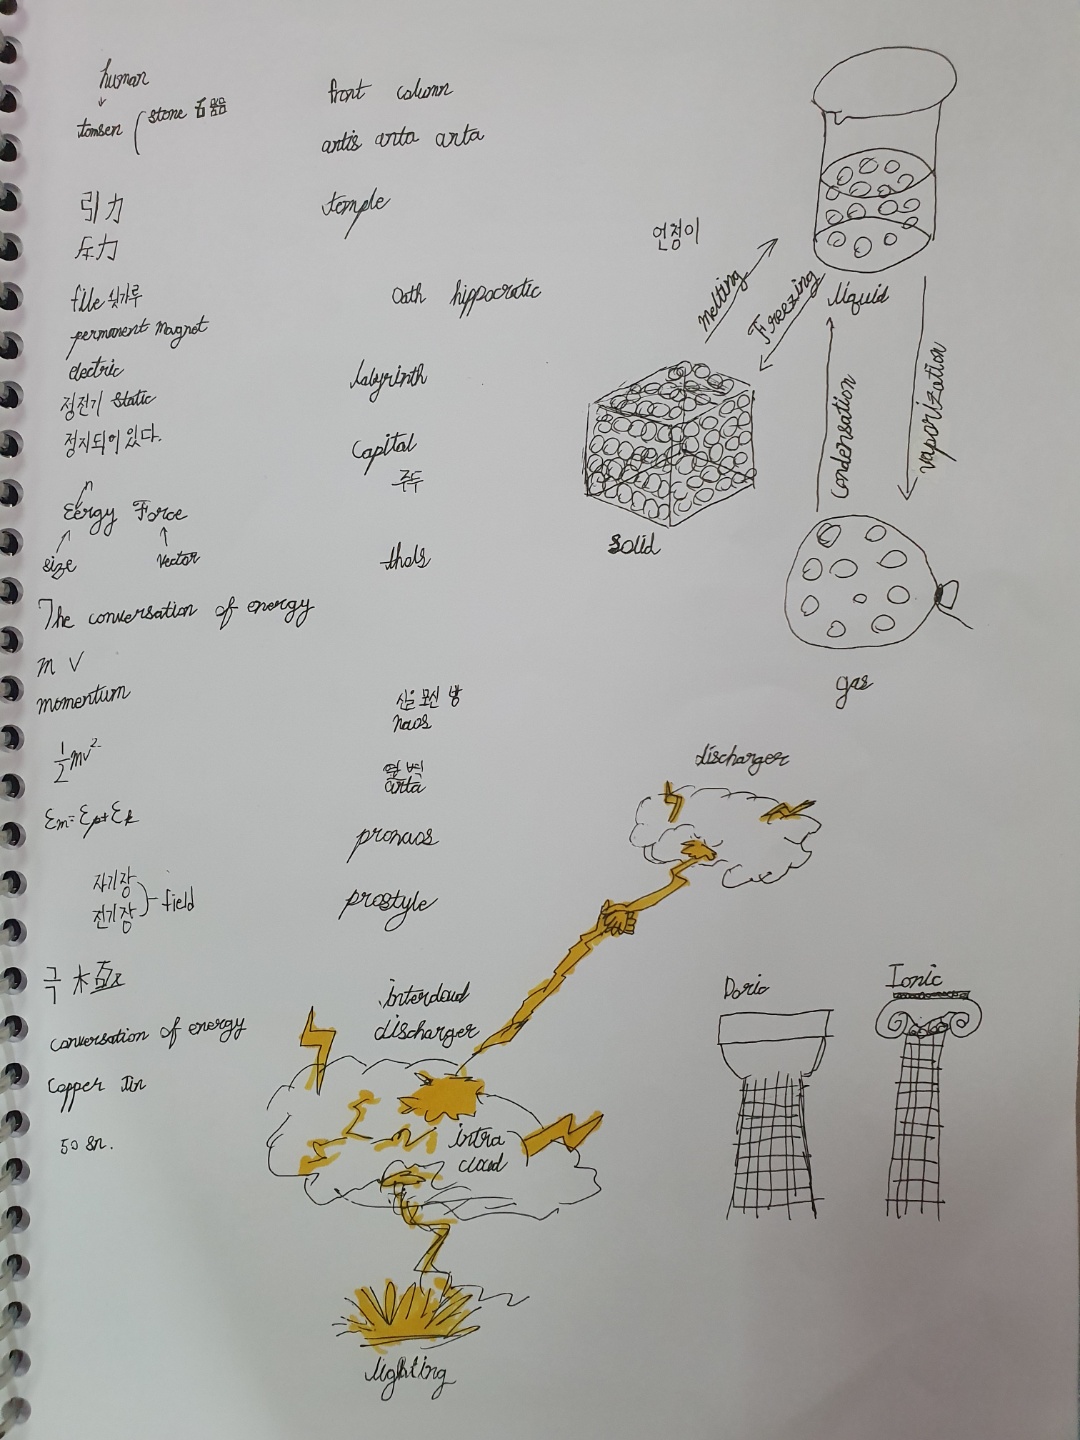 human
↓
tomsen (stone 石
引力
斥力
file 쇳가루
permanent magnet
electric
정전기 static
정지되어 있다.
Eergy Force
size vector
The conversation of energy
m v
momentum
½mv²
Em=Ep+Ek
자기장
전기장
field
극 極
conversation of energy
copper tin
50 sn.
front column
antis anta anta
temple
Oath hippocratic
labyrinth
capital
주두
thols
신을 모신 방
naos
옆 벽
anta
pronaos
prostyle
언정이
Melting
Freezing
liquid
condensation
vaporization
solid
gas
discharger
intercloud
discharger
intra
cloud
lighting
Doric
Ionic